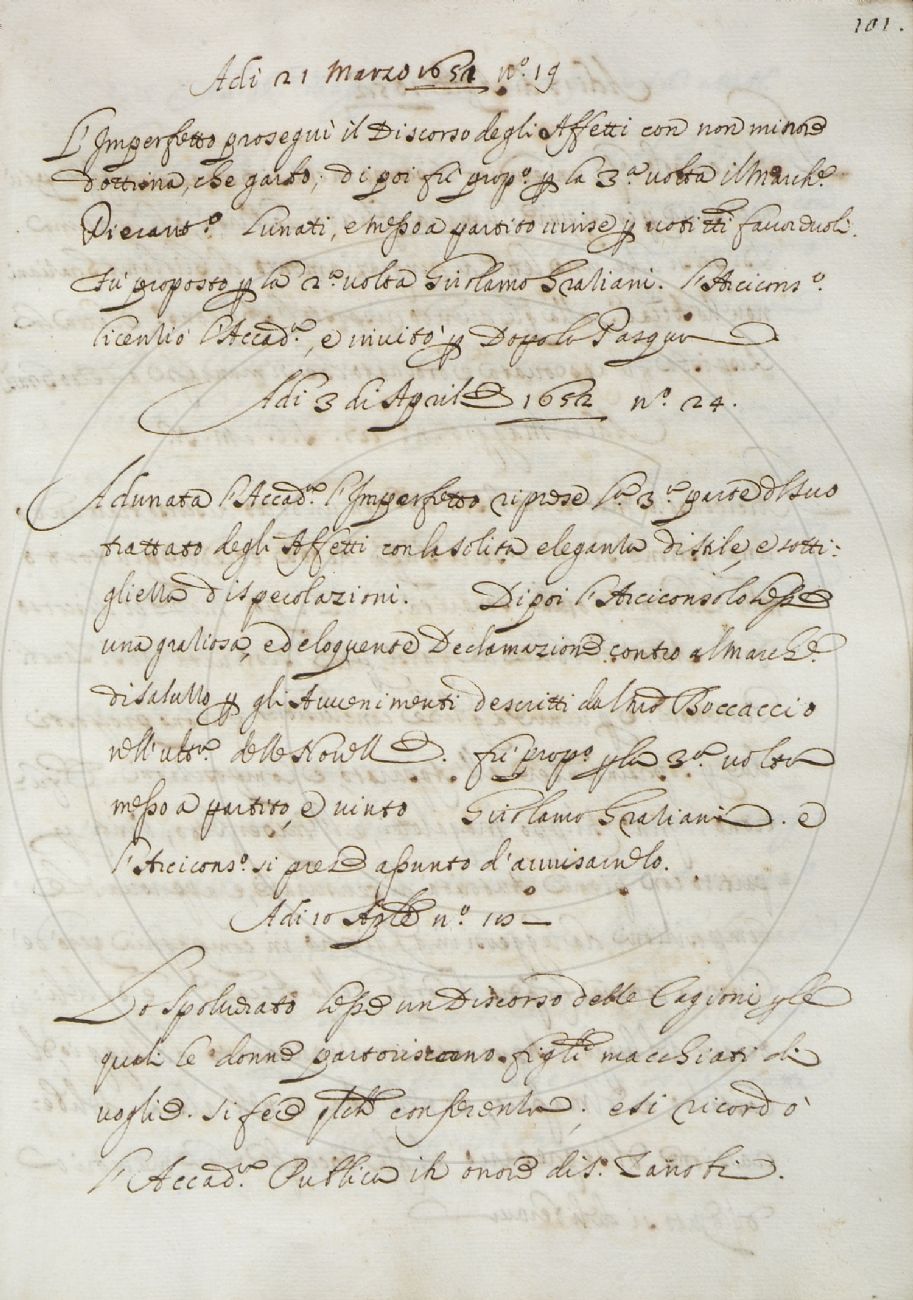 101.
Adi 21 Marzo 1652 n.º 19
L'Imperfetto proseguì il Discorso degli Affetti con non minore
dottrina, che garbo; di poi fù prop.º p la 3.ª volta il March.e
Pierant.º Lunati, e messo a partito vinse p voti tti favorevoli.
Fù proposto p la 2.ª volta Girolamo Graziani. L'Arcicons.º
licenziò l'Accad.ª, e invitò p Dopo la Pasqua
Adi 3 di Aprile 1652 n.º 24.
Adunata l'Accad.ª l'Imperfetto riprese la 3.ª parte d'suo
trattato degli Affetti con la solita eleganza di stile, e sotti:
gliezza di specolazioni. Di poi l'Arciconsolo lesse
una graziosa, ed eloquente Declamazione contro al March.e
di Saluzzo p gli Avvenimenti descritti dal Boccaccio
nell'ult.ª delle Novelle. fù prop.º p la 3.ª volta
messo a partito, e vinto Girolamo Graziani. e
l'Arcicons.º si prese assunto d'avvisarnelo.
Adi 10 Aple n.º
Lo Spolverato lesse un Discorso delle Cagioni ple
quali le donne partoriscono figli macchiati di
voglie. si fece qlche conferenza; e si ricordò
l'Accad.ª Publica in onore di S. Zanobi.